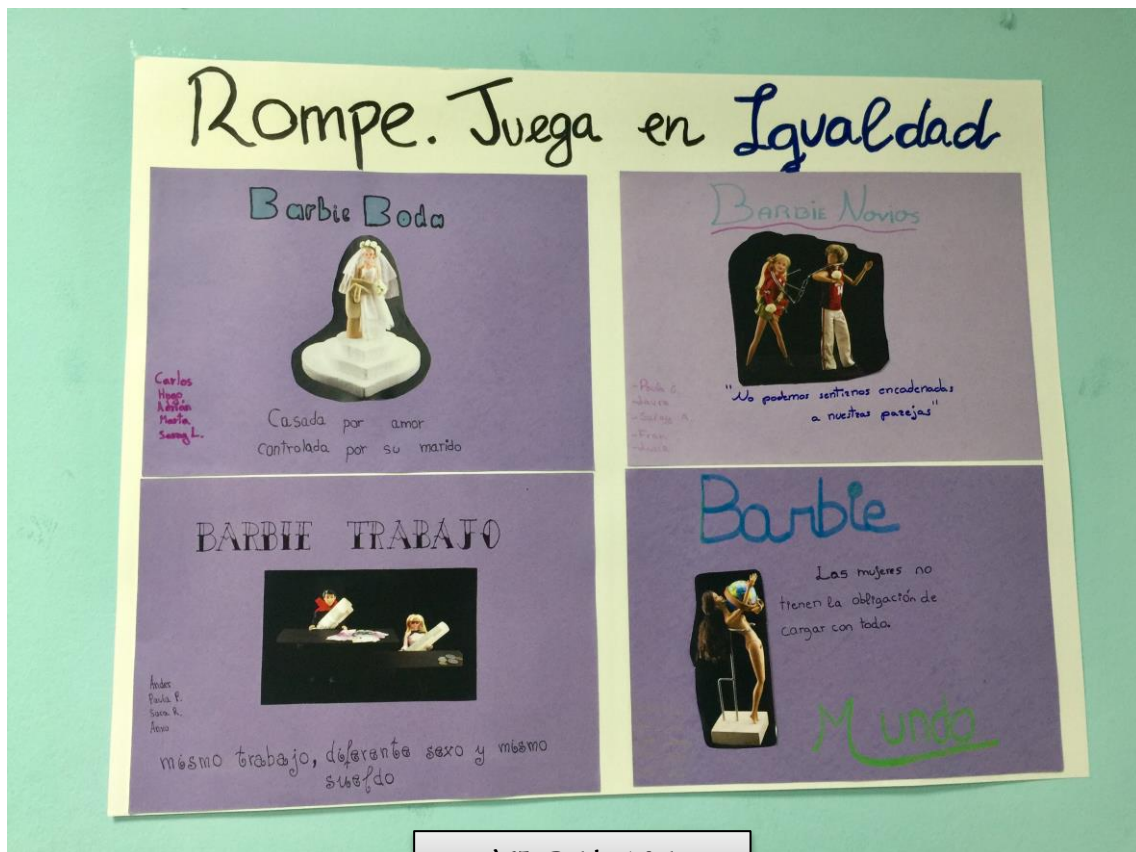 Rompe. Juega en Igualdad
Barbie Boda
Carlos
Hugo
Adrián
Marta
Saray L.
Casada por amor
controlada por su marido
BARBIE Novios
-Paula S.
-Laura
-Saray A.
-Fran
-Lucía
"No podemos sentirnos encadenadas
a nuestras parejas"
BARBIE TRABAJO
Ander
Paula P.
Sara R.
mismo trabajo, diferente sexo y mismo
sueldo
Barbie
Las mujeres no
tienen la obligación de
cargar con todo.
Mundo